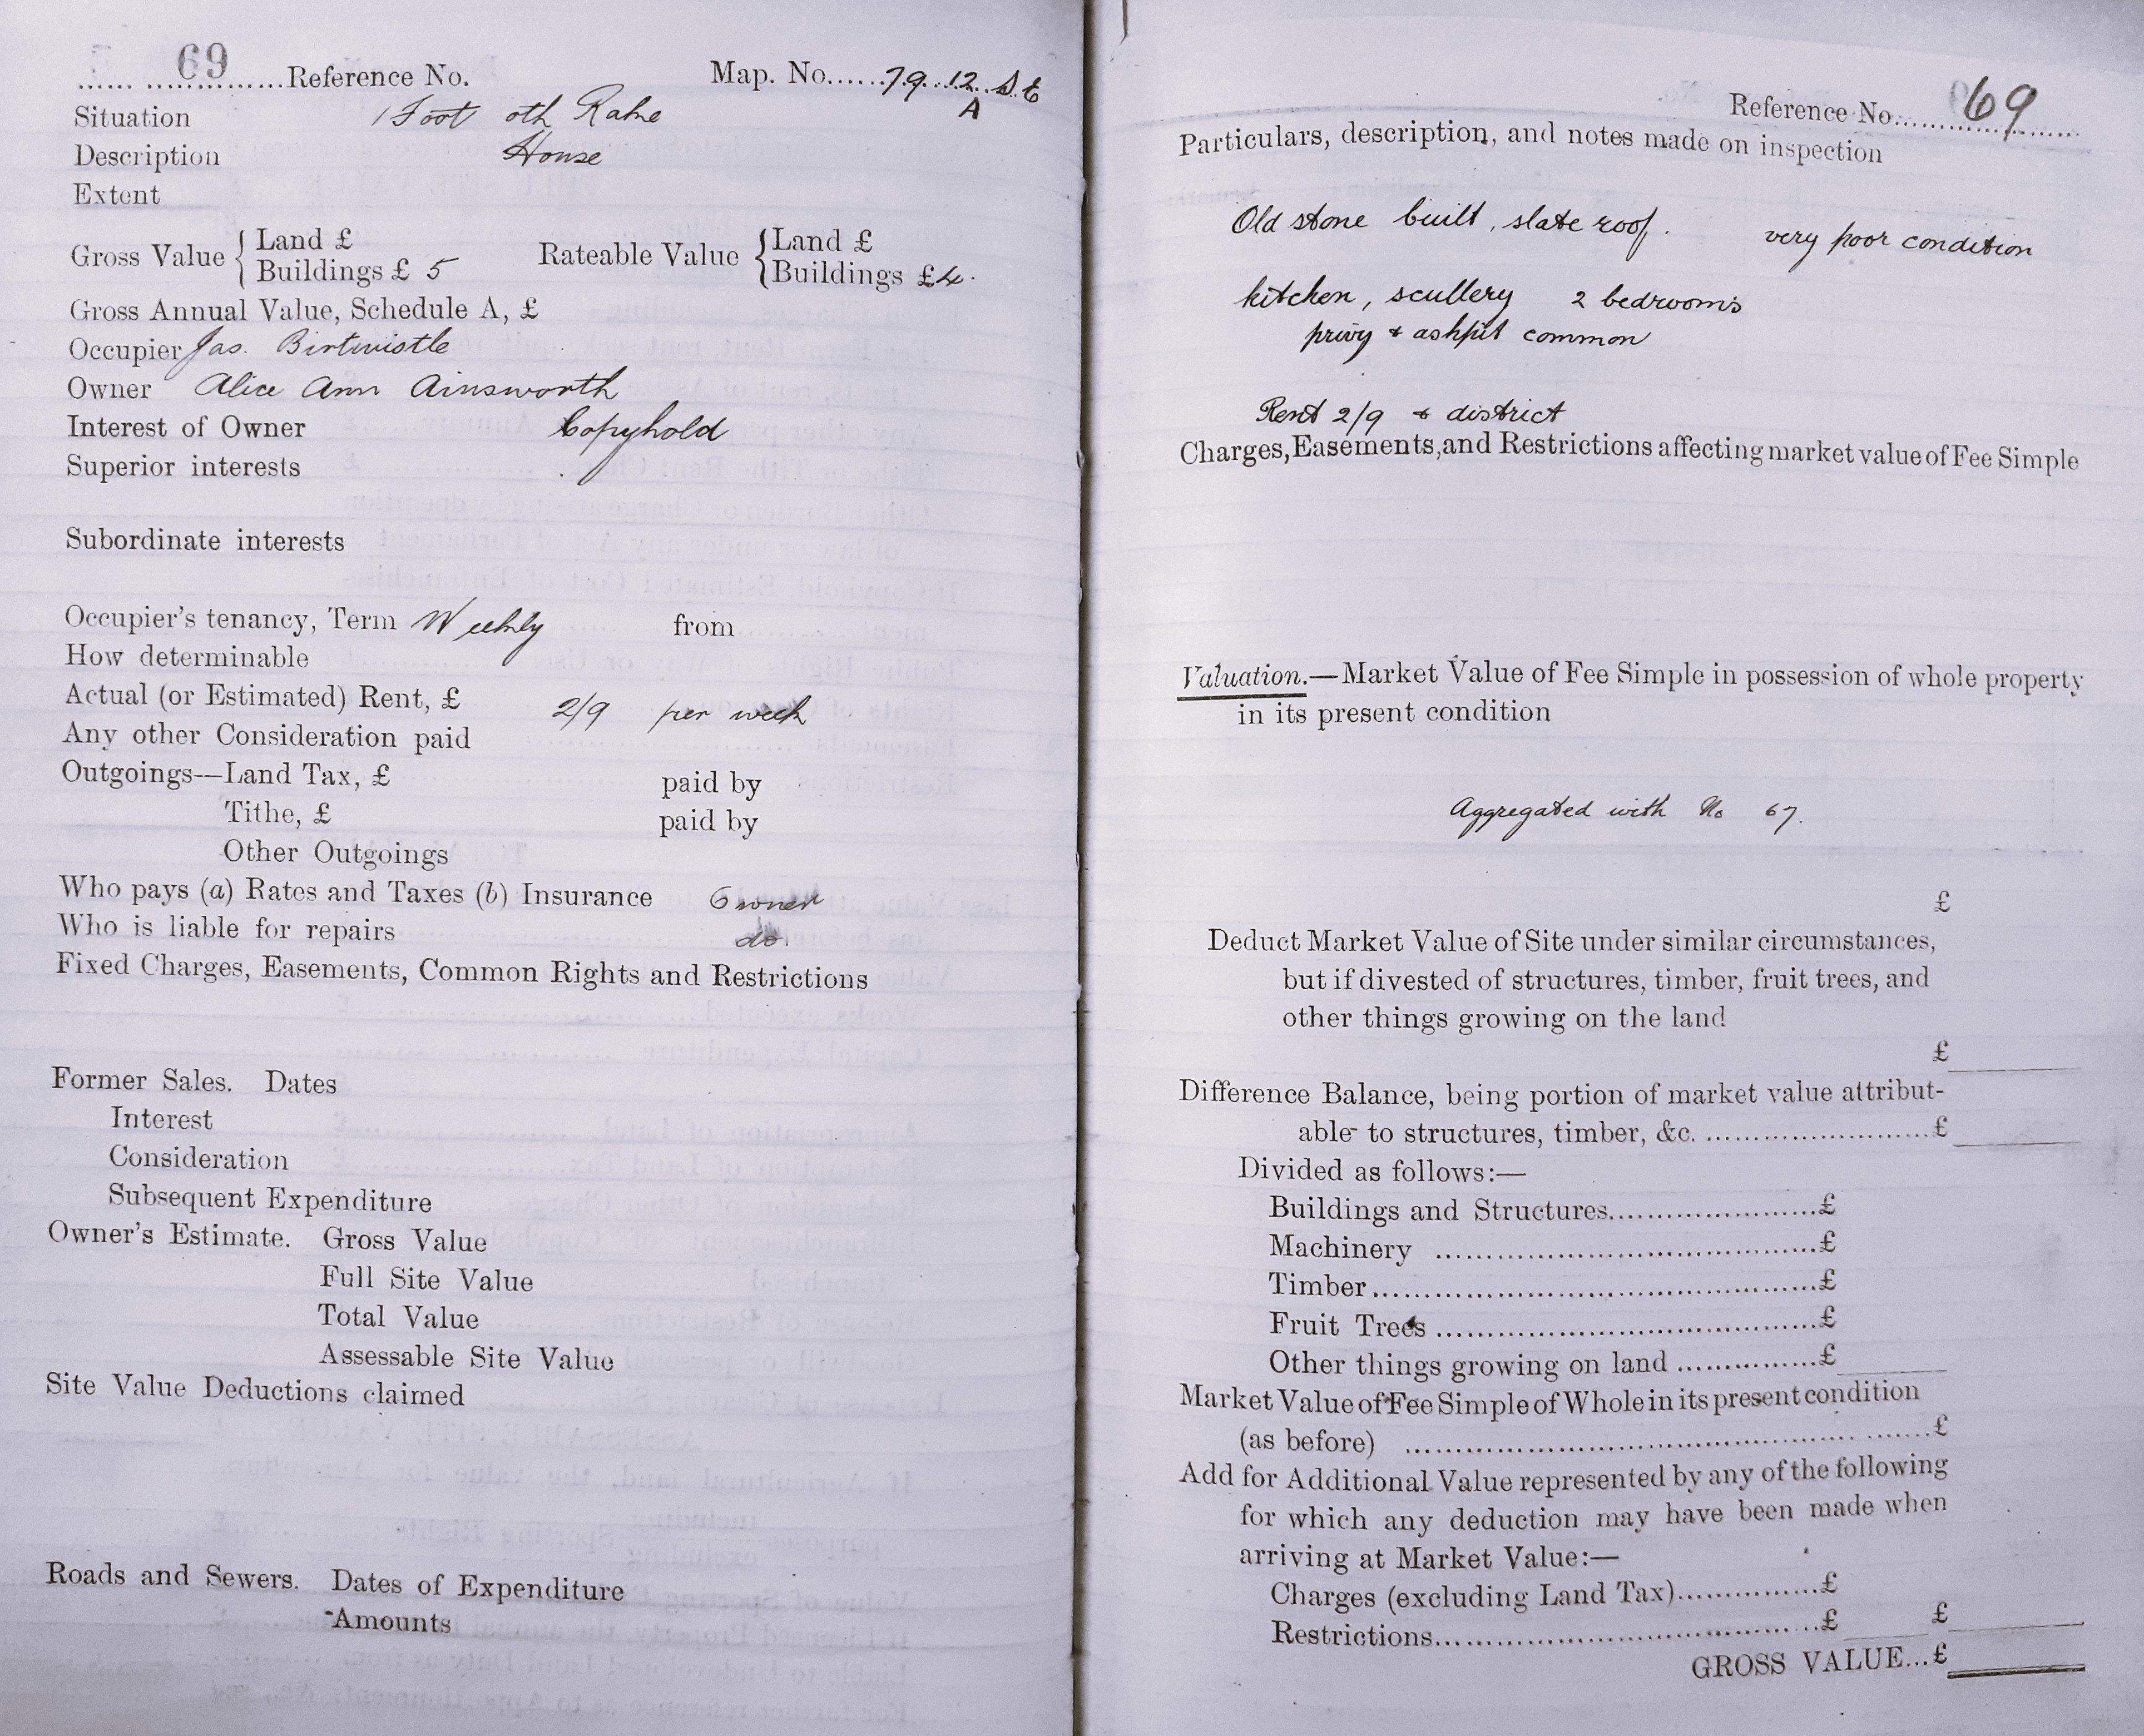 69 Reference No. Map. No. 79. 12. S.E
A
Situation 1 Foot oth Rake
Description House
Extent
Gross Value { Land £
Buildings £ 5
Rateable Value { Land £
Buildings £4.
Gross Annual Value, Schedule A, £
Occupier Jas. Birtwistle
Owner Alice Ann Ainsworth
Interest of Owner Copyhold
Superior interests
Subordinate interests
Occupier's tenancy, Term Weekly from
How determinable
Actual (or Estimated) Rent, £ 2/9 per week
Any other Consideration paid
Outgoings—Land Tax, £ paid by
Tithe, £ paid by
Other Outgoings
Who pays (a) Rates and Taxes (b) Insurance Owner
Who is liable for repairs do.
Fixed Charges, Easements, Common Rights and Restrictions
Former Sales. Dates
Interest
Consideration
Subsequent Expenditure
Owner's Estimate. Gross Value
Full Site Value
Total Value
Assessable Site Value
Site Value Deductions claimed
Roads and Sewers. Dates of Expenditure
Amounts
Reference No. 69
Particulars, description, and notes made on inspection
Old stone built, slate roof. very poor condition
kitchen, scullery 2 bedrooms
privy & ashpit common
Rent 2/9 & district
Charges, Easements, and Restrictions affecting market value of Fee Simple
Valuation.—Market Value of Fee Simple in possession of whole property
in its present condition
Aggregated with No 67.
£
Deduct Market Value of Site under similar circumstances,
but if divested of structures, timber, fruit trees, and
other things growing on the land
£
Difference Balance, being portion of market value attribut-
able to structures, timber, &c. £
Divided as follows:—
Buildings and Structures £
Machinery £
Timber £
Fruit Trees £
Other things growing on land £
Market Value of Fee Simple of Whole in its present condition
(as before) £
Add for Additional Value represented by any of the following
for which any deduction may have been made when
arriving at Market Value:—
Charges (excluding Land Tax) £
Restrictions £ £
GROSS VALUE...£